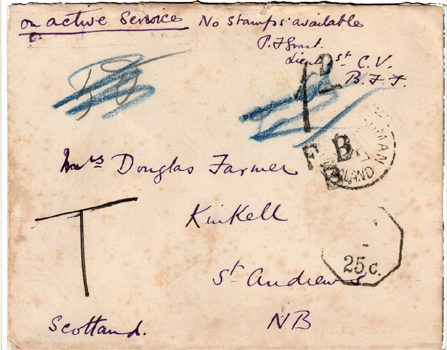 on active Service No Stamps available
P. F Grant.
Lieut St C.V.
B.F.F.
1D
B.
F.B
MAN
LAND
Mrs Douglas Farmer
Kinkell
T
25 c.
St Andrews
Scotland.
NB